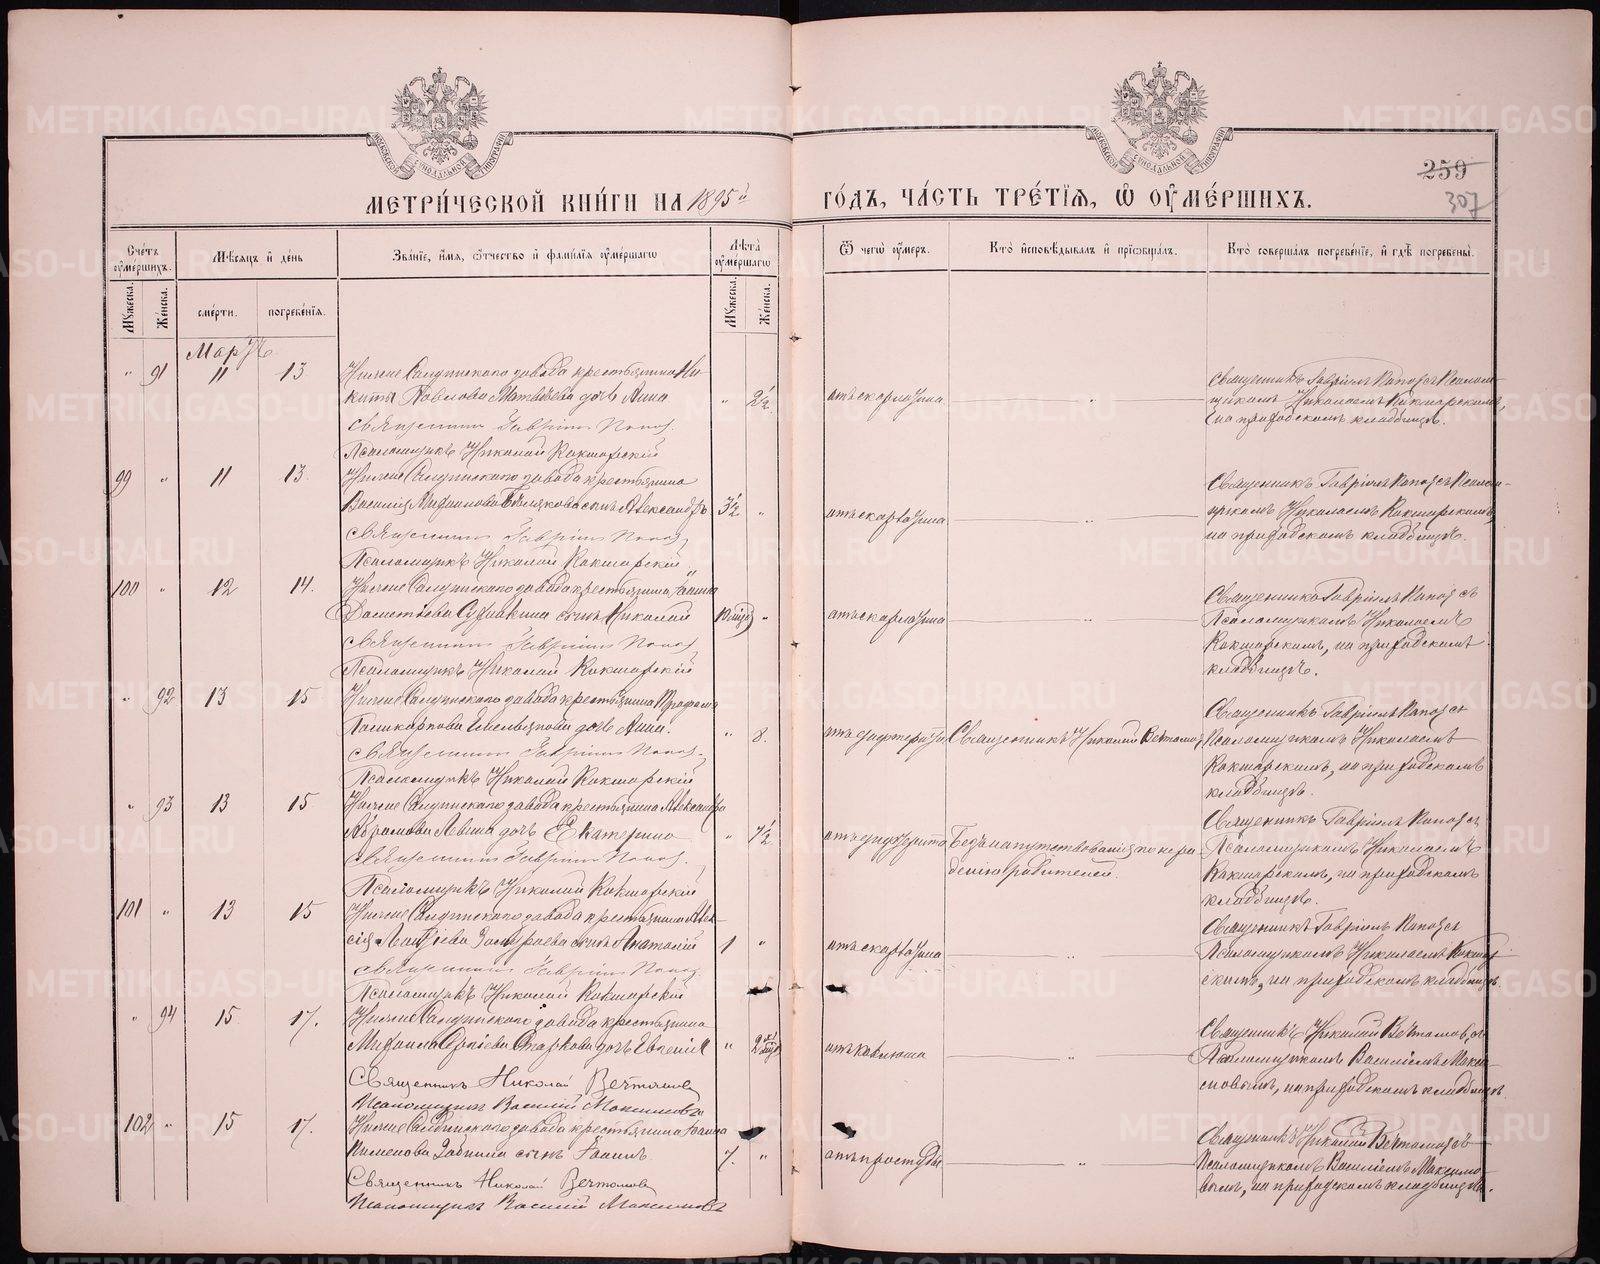 МЕТРИ́ЧЕСКОЙ КНИ́ГИ НА 1895й
ГО́ДЪ, ЧА́СТЬ ТРЕ́ТЇЯ, Ѿ ОУМЕ́РШИХЪ.
259
307
Сче́тъ оумершихъ.
Мѣсяцъ и день
Званіе, имя, отчество и фамилія оумершагѡ
Лѣта оумершагѡ
Мужеска.
Женска.
смерти.
погребенія.
Мужеска.
Женска.
Ѿ чегѡ оумеръ.
Кто исповѣдывалъ и пріобщалъ.
Кто совершалъ погребеніе, и гдѣ погребены.
Мартъ
" 91 11 13 Нижне Салдинскаго завода крестьянина Ни-
киты Павлова Матвѣева дочь Анна " 2½ отъ скарлатины "
Священникъ Гавріилъ Попов
Псаломщикъ Николай Кокшарскій
Священникъ Гавріилъ Поповъ с Псалом-
щикомъ Николаемъ Кокшарскимъ,
на приходскомъ кладбищѣ.
99 " 11 13 Нижне Салдинскаго завода крестьянина
Василія Михаилова Бѣлякова сынъ Александръ 3½ " отъ скарлатины "
Священникъ Гавріилъ Попов
Псаломщикъ Николай Кокшарскій
Священникъ Гавріилъ Поповъ с Псалом-
щикомъ Николаемъ Кокшарскимъ,
на приходскомъ кладбищѣ.
100 " 12 14. Нижне Салдинскаго завода крестьянина Іоанна
сынъ Николай " отъ скарлатины "
Священникъ Гавріилъ Попов
Псаломщикъ Николай Кокшарскій
Священникъ Гавріилъ Поповъ съ
Псаломщикомъ Николаемъ
Кокшарскимъ, на приходскомъ
кладбищѣ.
" 92 13 15 Нижне Салдинскаго завода крестьянина Трофима
Поликарпова Емельянова дочь Анна. " 8. Священникъ Николай Вечтомов
Священникъ Гавріилъ Попов
Псаломщикъ Николай Кокшарскій
Священникъ Гавріилъ Поповъ съ
Псаломщикомъ Николаемъ
Кокшарскимъ, на приходскомъ
кладбищѣ.
" 93 13 15 Нижне Салдинскаго завода крестьянина Александра
Абрамова дочь Екатерина " 7½ отъ дифтерита Безъ напутствованія по нера-
дѣнію родителей.
Священникъ Гавріилъ Попов
Псаломщикъ Николай Кокшарскій
Священникъ Гавріилъ Поповъ съ
Псаломщикомъ Николаемъ
Кокшарскимъ, на приходскомъ
кладбищѣ.
101 " 13 15 Нижне Салдинскаго завода крестьянина Алек-
сія сынъ Анатолій 1 " отъ скарлатины "
Священникъ Гавріилъ Попов
Псаломщикъ Николай Кокшарскій
Священникъ Гавріилъ Поповъ съ
Псаломщикомъ Николаемъ Кокшар-
скимъ, на приходскомъ кладбищѣ.
" 94 15 17. Нижне Салдинскаго завода крестьянина
Михаила Сергіева Старкова дочь Евгенія " отъ коклюша "
Священникъ Николай Вечтомовъ
Псаломщикъ Василій Максимовъ
Священникъ Николай Вечтомовъ, съ
Псаломщикомъ Василіемъ Макси-
мовымъ, на приходскомъ кладбищѣ.
102 " 15 17. Нижне Салдинскаго завода крестьянина Іоанна
Пименова сынъ Іоаннъ 7. " отъ простуды "
Священникъ Николай Вечтомовъ
Псаломщикъ Василій Максимовъ
Священникъ Николай Вечтомовъ съ
Псаломщикомъ Василіемъ Максимо-
вымъ, на приходскомъ кладбищѣ.
METRIKI.GASO-URAL.RU